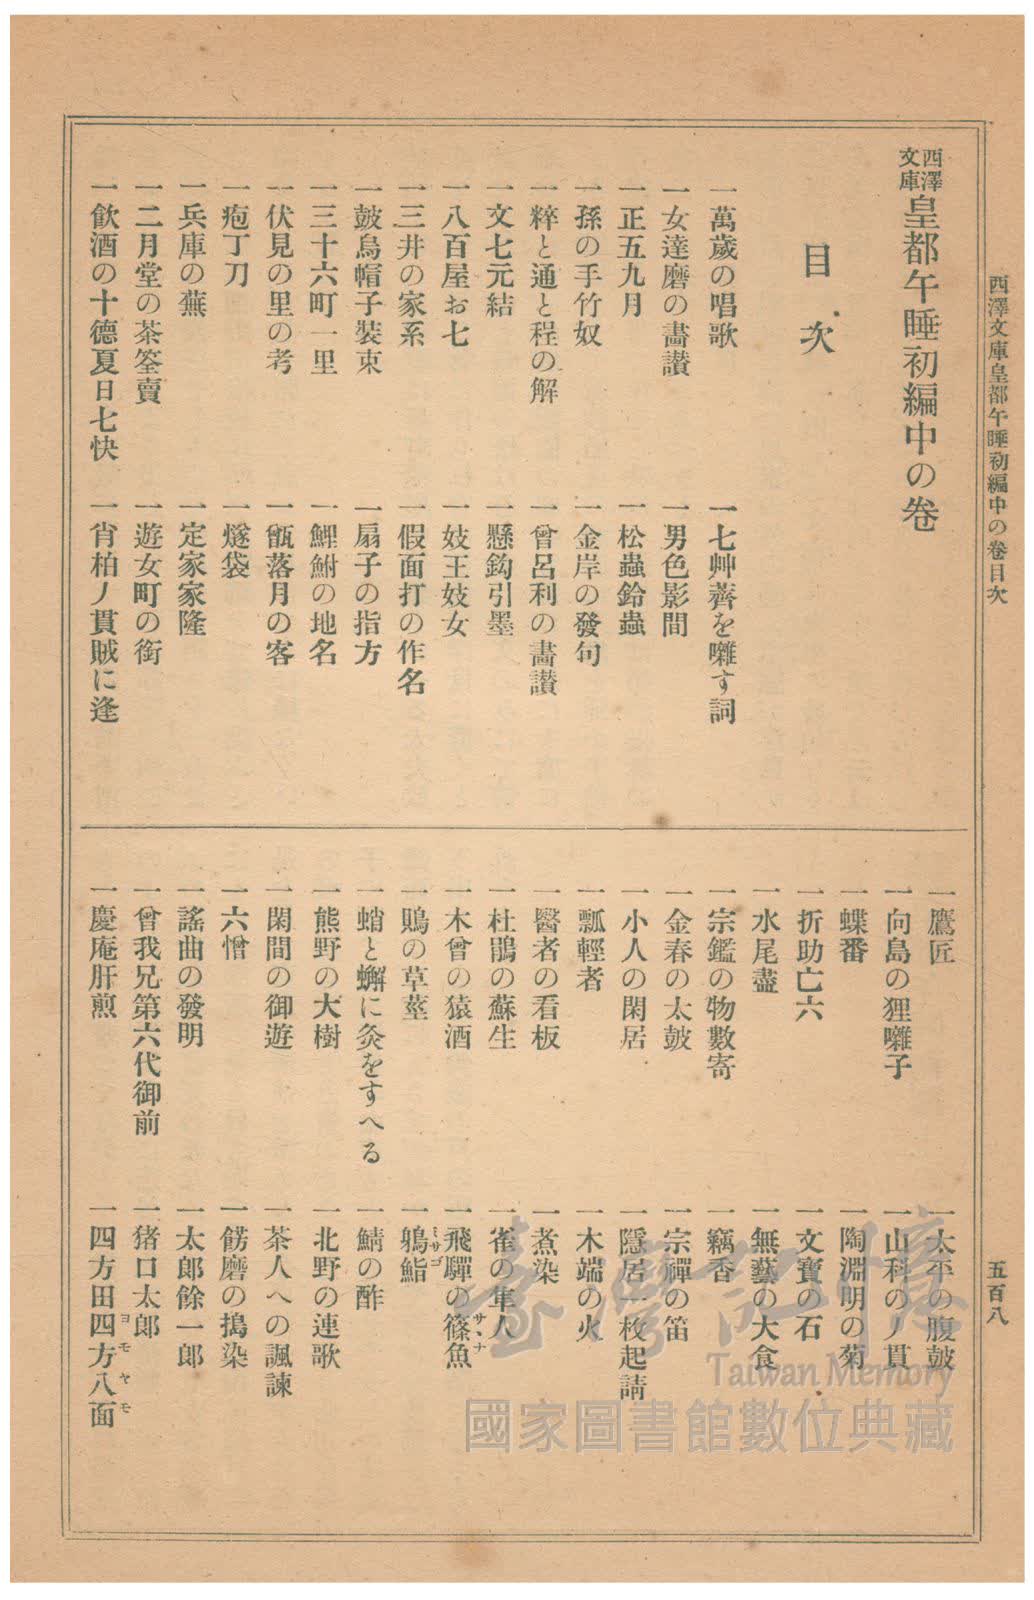 西澤文庫皇都午睡初編中の卷目次
五百八
西澤文庫 皇都午睡初編中の卷
目次
一萬歲の唱歌
一七艸薺を囃す詞
一女達磨の畵讃
一男色影間
一正五九月
一松蟲鈴蟲
一孫の手竹奴
一金岸の發句
一粹と通と程の解
一曾呂利の畵讃
一文七元結
一懸鈎引墨
一八百屋お七
一妓王妓女
一三井の家系
一假面打の作名
一皷烏帽子裝束
一扇子の指方
一三十六町一里
一鯉鮒の地名
一伏見の里の考
一甑落月の客
一疱丁刀
一燧袋
一兵庫の蕪
一定家家隆
一二月堂の茶筌賣
一遊女町の衒
一飮酒の十德夏日七快
一肖柏ノ貫賊に逢
一鷹匠
一太平の腹皷
一向島の狸囃子
一山科のノ貫
一蝶番
一陶淵明の菊
一折助亡六
一文寶の石
一水尾盡
一無藝の大食
一宗鑑の物數寄
一竊香
一金春の太皷
一宗禪の笛
一小人の閑居
一隱居一枚起請
一瓢輕者
一木端の火
一醫者の看板
一煮染
一杜鵑の蘇生
一雀の隼人
一木曾の猿酒
一飛驒の篠魚 サゝナ
一鵙の草莖
一鵃鮨 ミサゴ
一蛸と蠏に灸をすへる
一鯖の酢
一熊野の大樹
一北野の連歌
一閑間の御遊
一茶人への諷諫
一六憎
一餝磨の搗染
一謠曲の發明
一太郎餘一郎
一曾我兄第六代御前
一猪口太郎
一慶庵肝煎
一四方田四方八面 ヨモヤモ
臺灣記憶
Taiwan Memory
國家圖書館數位典藏